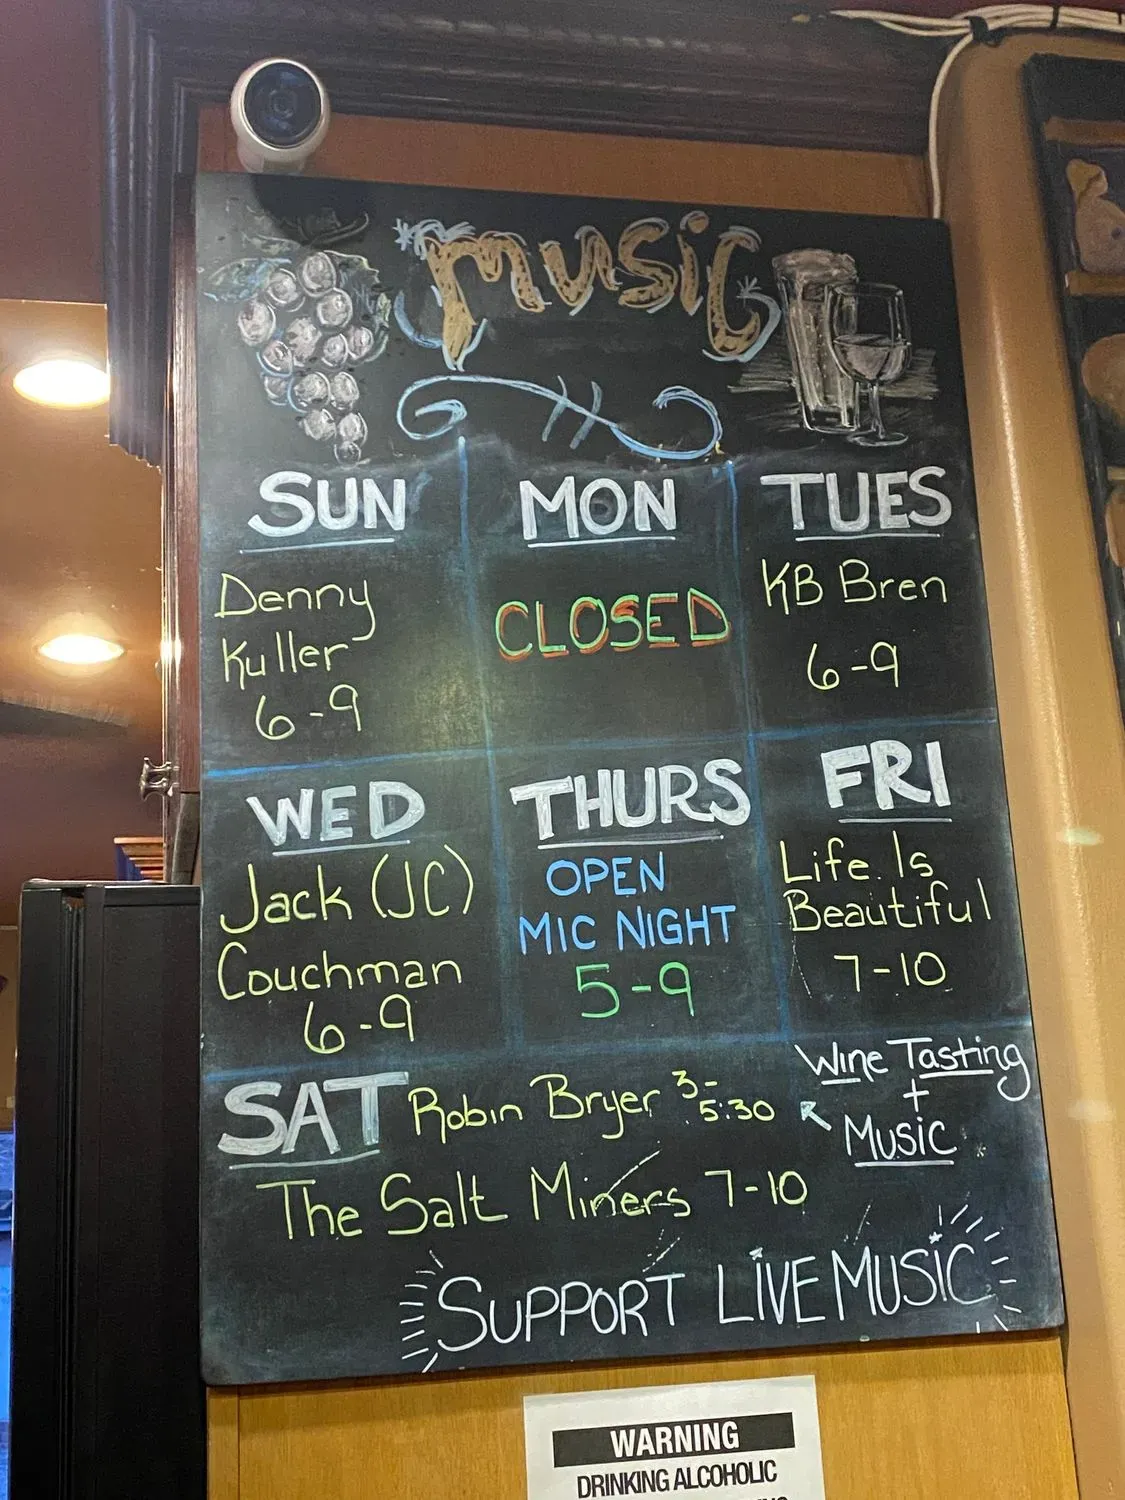 music
SUN
Denny
Kuller
6-9
MON
CLOSED
TUES
KB Bren
6-9
WED
Jack (JC)
Couchman
6-9
THURS
OPEN
MIC NIGHT
5-9
FRI
Life Is
Beautiful
7-10
SAT Robin Bryer 3-
5:30
Wine Tasting
+
Music
The Salt Miners 7-10
SUPPORT LIVE MUSIC
WARNING
DRINKING ALCOHOLIC